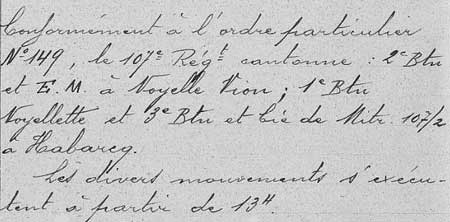 Conformément à l'ordre particulier
N° 149, le 107e Régt cantonne : 2e Btn
et E. M. à Noyelle Vion ; 1e Btn
Noyellette et 3e Btn et Cie de Mitr. 107/2
à Habarcq.
Les divers mouvements s'exécu-
tent à partir de 13H.